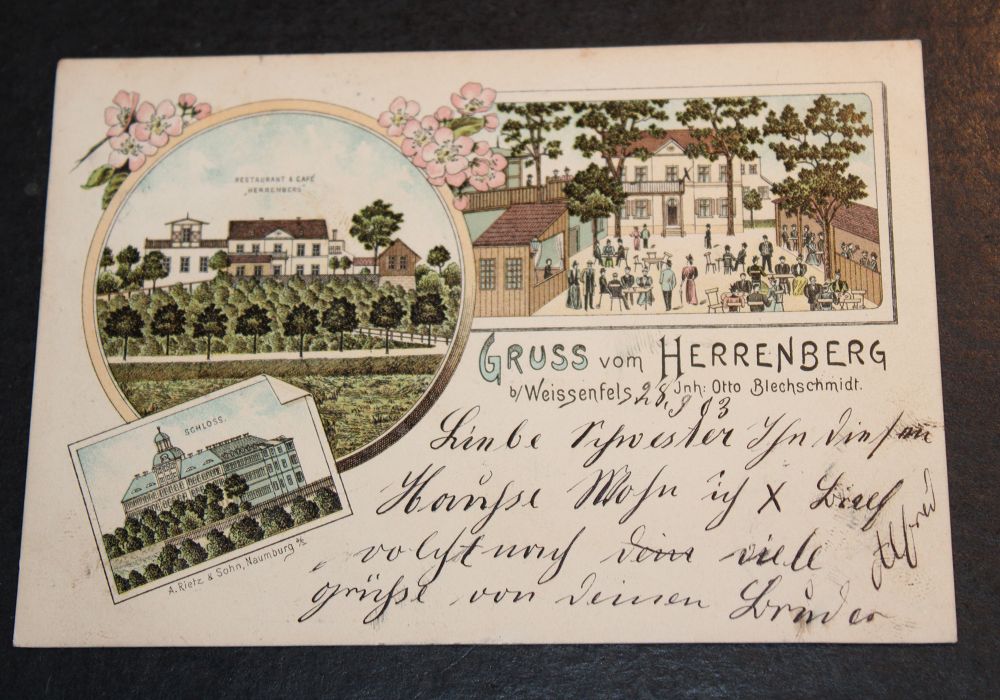 RESTAURANT & CAFÉ
"HERRENBERG"
GRUSS vom HERRENBERG
b/Weissenfels. Jnh: Otto Blechschmidt.
28.9 03
SCHLOSS.
A. Rietz & Sohn, Naumburg a/s
Liebe Schwester Ihn diesen
Hauhse Wohn ich X Brief
volgt nach dein viele
grühse von deinen Bruder
Alfred